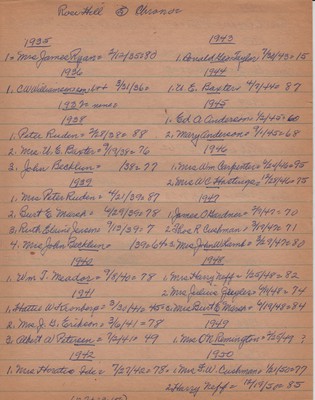 Rose Hill Chronor
1935
1 - Mrs James Ryan = 2/12/35 = 80
1936
1. C.W. Williamson 3/31/36 =
1937 none
1938
1. Peter Ruden = 2/28/38 = 88
2. Mrs U. E. Baxter = 9/19/38 = 76
3. John Becklun = 138 = 77
1939
1. Mrs Peter Ruden = 4/21/39 = 87
2. Burt E. Marsh = 4/29/39 = 78
3. Ruth Elaine Jensen 7/12/39 = 7
4. Mrs John Becklun = 139 = 64
1940
1. Wm T. Meador = 9/18/40 = 78
1941
1. Hattie W. 3/30/41 = 45
2. Mrs J. B. Erikson = 3/6/41 = 78
3. Albert W. Petersen = 7/24/41 = 49
1942
1. Mrs Horatio Ide = 7/27/42 = 78
1943
1. Donald Glen Taylor 7/20/43 = 15
1944
1. U. E. Baxter = 4/9/44 = 87
1945
1. Ed O. Anderson = 1/2/45 = 60
2. Mary Anderson = 9/1/45 = 68
1946
1. Mrs Wm Carpenter = 2/24/46 = 95
2. Mrs W C Hastings = 12/28/46 = 85
1947
1. James O Hardner = 3/9/47 = 70
2. Rhoe R Cushman = 3/19/47 = 71
3. Mrs John W. Land = 3/29/47 = 80
1948
1. Mrs Harry Neff = 1/25/48 = 82
2. Mrs Julius = 4/4/48 = 74
3. Mrs Burt E Marsh = 4/19/48 = 84
1949
1. Mrs O. R. Remington = 2/2/49 = ?
1950
1. Mrs E W. Cushman = 1/21/50 = 77
2. Harry Neff = 10/19/50 = 85